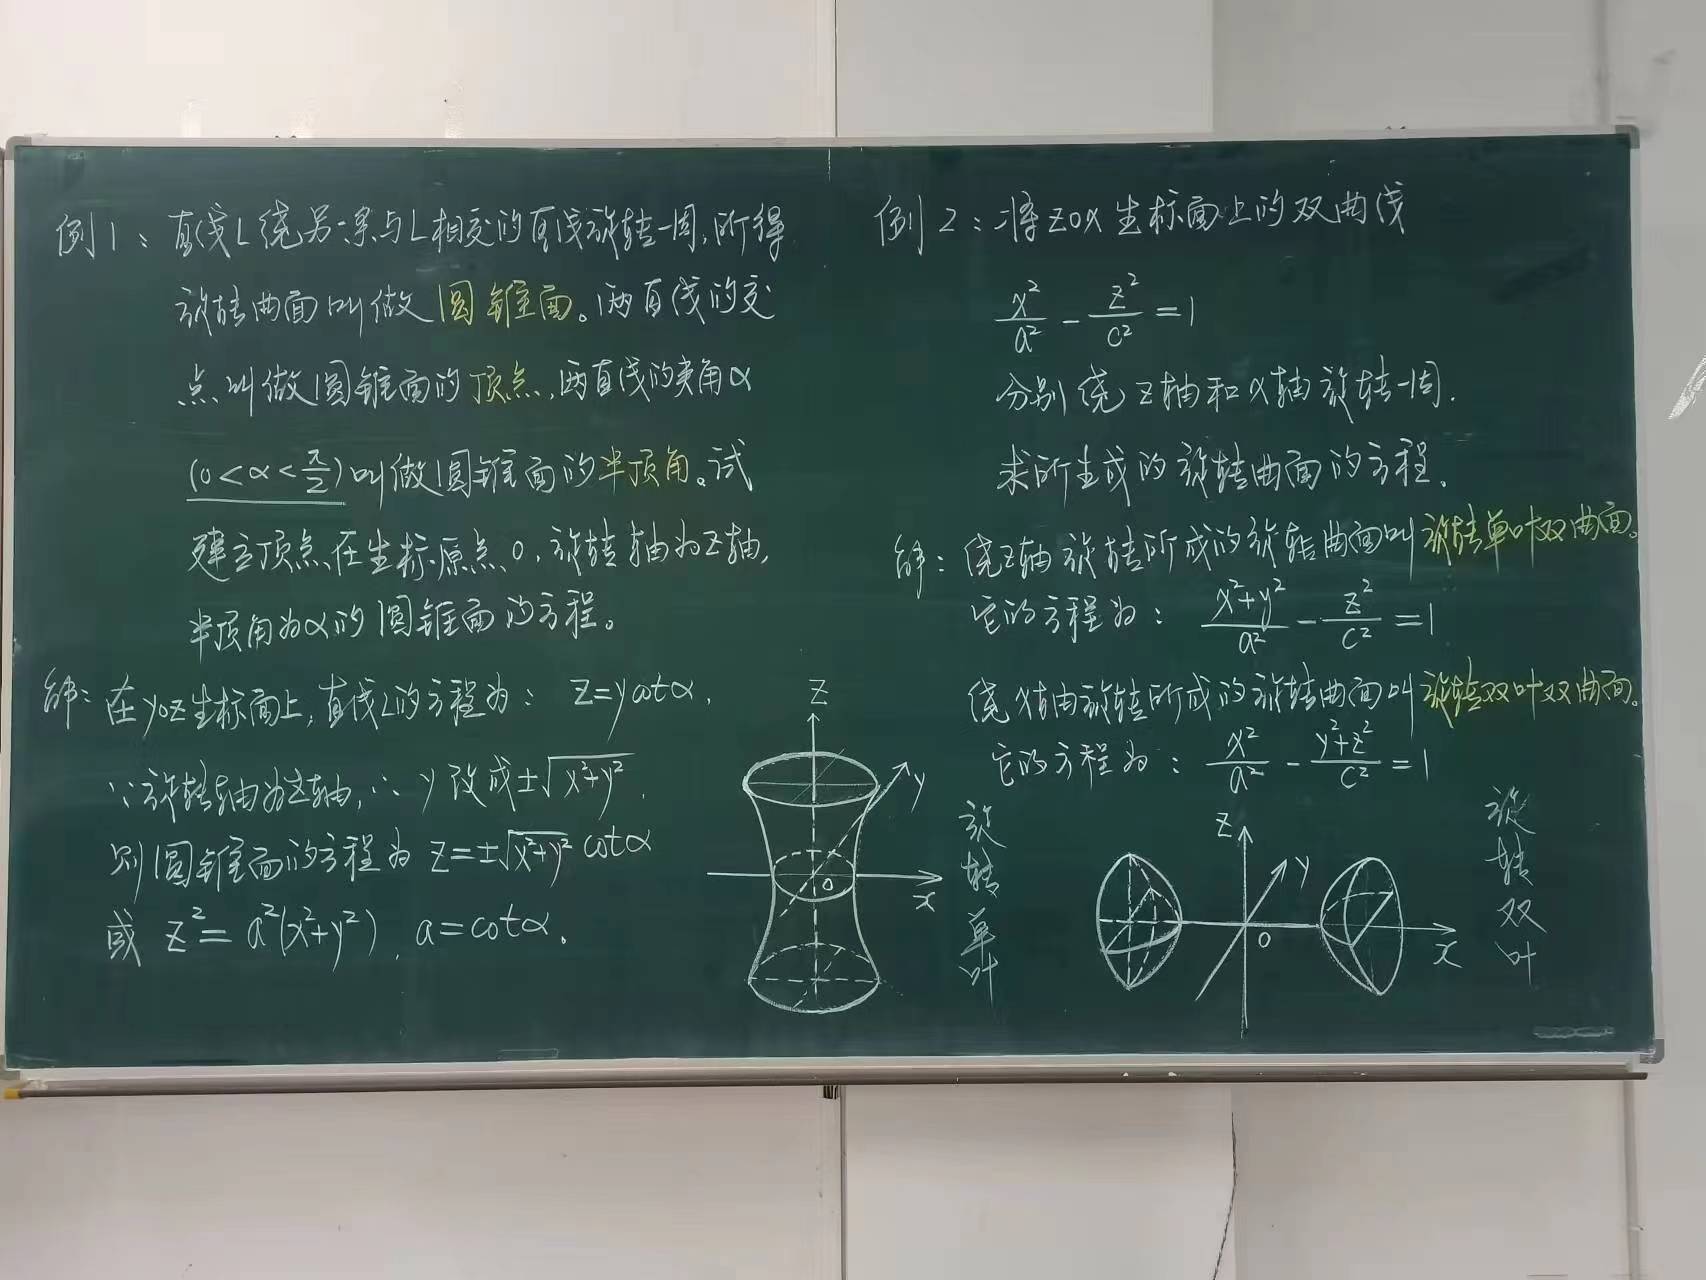 例1：直线L绕另一条与L相交的直线旋转一周，所得
旋转曲面叫做圆锥面。两直线的交
点叫做圆锥面的顶点，两直线的夹角α
(0<α<π/2)叫做圆锥面的半顶角。试
建立顶点在坐标原点O，旋转轴为Z轴，
半顶角为α的圆锥面的方程。
解：在yoz坐标面上，直线L的方程为：z=ycotα，
∵旋转轴为z轴，∴y改成±√(x²+y²)，
则圆锥面的方程为 z=±√(x²+y²) cotα
或 z²=a²(x²+y²)，a=cotα。
z
y
x
o
例2：将zox坐标面上的双曲线
x²/a² - z²/c² = 1
分别绕z轴和x轴旋转一周.
求所生成的旋转曲面的方程.
解：绕z轴旋转所成的旋转曲面叫旋转单叶双曲面。
它的方程为：(x²+y²)/a² - z²/c² = 1
绕x轴旋转所成的旋转曲面叫旋转双叶双曲面。
它的方程为：x²/a² - (y²+z²)/c² = 1
旋转单叶
z
y
x
o
旋转双叶